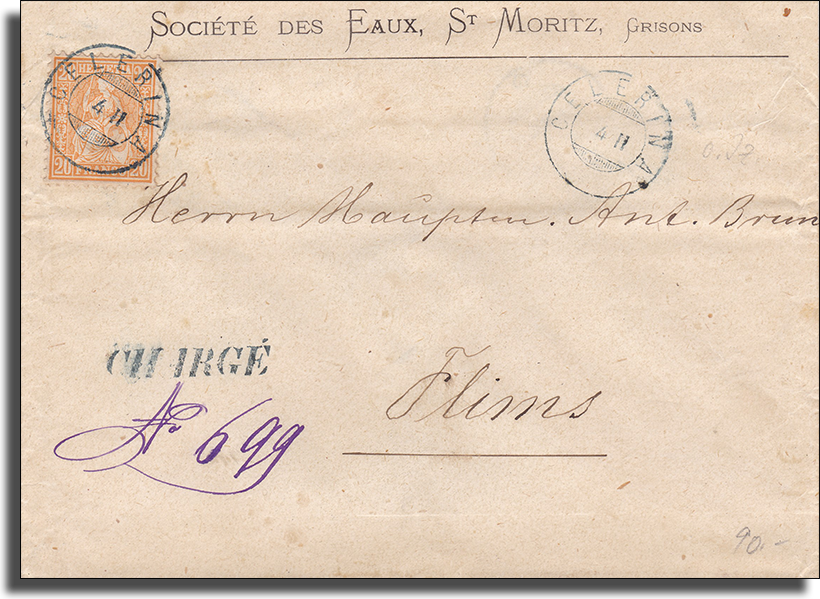 SOCIÉTÉ DES EAUX, ST MORITZ, GRISONS
20 HELVETIA 20
20 FRANCO 20
CELERINA
4 II
CELERINA
4 II
Herrn Hauptm. Ant. Brun
CHARGÉ
No 699
Flims
90.-